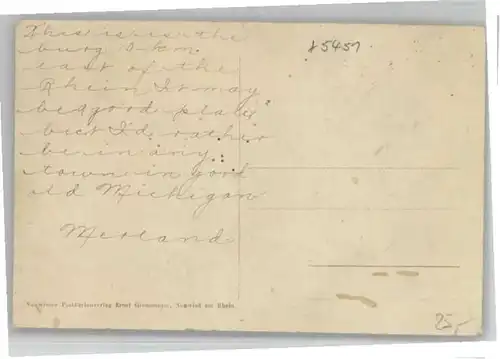 This is is the
burg 1 km
east of the
Rhein It may
be a good place
but I'd rather
be in any
town in good
old Michigan
Merland
x 5451
Neuwieder Postkartenverlag Ernst Neuwied am Rhein.
25,-